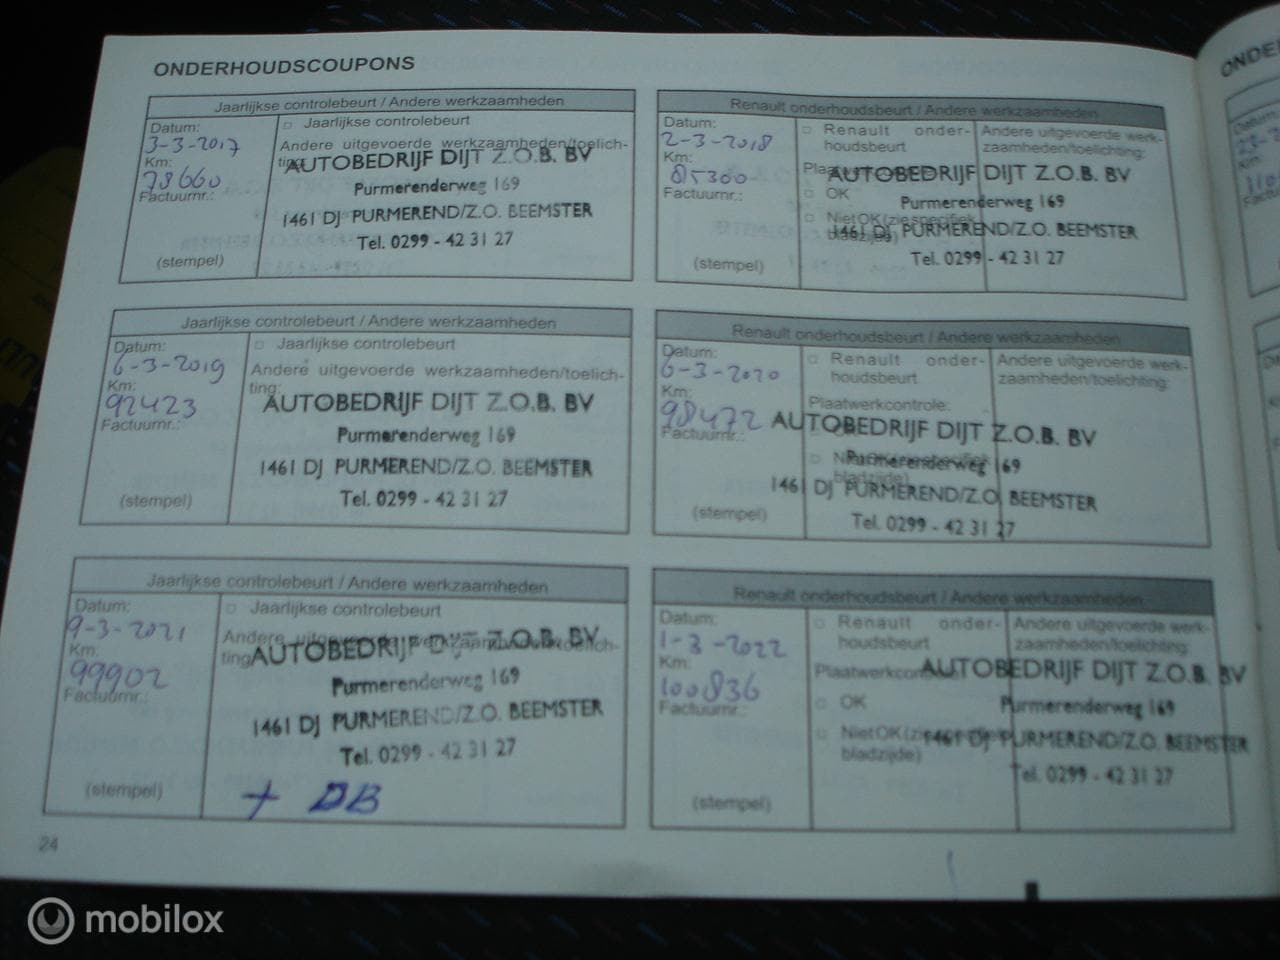 ONDERHOUDSCOUPONS
Jaarlijkse controlebeurt / Andere werkzaamheden
Datum:
3-3-2017
Km:
78660
Factuurnr.:
(stempel)
Jaarlijkse controlebeurt
Andere uitgevoerde werkzaamheden/toelich-
ting:
AUTOBEDRIJF DIJT Z.O.B. BV
Purmerenderweg 169
1461 DJ PURMEREND/Z.O. BEEMSTER
Tel. 0299 - 42 31 27
Renault onderhoudsbeurt / Andere werkzaamheden
Datum:
2-3-2018
Km:
85300
Factuurnr.:
(stempel)
Renault onder-
houdsbeurt
OK
Niet OK (zie specifiek
bladzijde)
Andere uitgevoerde werk-
zaamheden/toelichting:
AUTOBEDRIJF DIJT Z.O.B. BV
Purmerenderweg 169
1461 DJ PURMEREND/Z.O. BEEMSTER
Tel. 0299 - 42 31 27
Jaarlijkse controlebeurt / Andere werkzaamheden
Datum:
6-3-2019
Km:
92423
Factuurnr.:
(stempel)
Jaarlijkse controlebeurt
Andere uitgevoerde werkzaamheden/toelich-
ting:
AUTOBEDRIJF DIJT Z.O.B. BV
Purmerenderweg 169
1461 DJ PURMEREND/Z.O. BEEMSTER
Tel. 0299 - 42 31 27
Renault onderhoudsbeurt / Andere werkzaamheden
Datum:
6-3-2020
Km:
98472
Factuurnr.:
(stempel)
Renault onder-
houdsbeurt
Plaatwerkcontrole:
Andere uitgevoerde werk-
zaamheden/toelichting:
AUTOBEDRIJF DIJT Z.O.B. BV
Purmerenderweg 169
1461 DJ PURMEREND/Z.O. BEEMSTER
Tel. 0299 - 42 31 27
Jaarlijkse controlebeurt / Andere werkzaamheden
Datum:
9-3-2021
Km:
99902
Factuurnr.:
(stempel)
Jaarlijkse controlebeurt
Andere uitgevoerde werkzaamheden/toelich-
ting:
AUTOBEDRIJF DIJT Z.O.B. BV
Purmerenderweg 169
1461 DJ PURMEREND/Z.O. BEEMSTER
Tel. 0299 - 42 31 27
+ DB
Renault onderhoudsbeurt / Andere werkzaamheden
Datum:
1-3-2022
Km:
100836
Factuurnr.:
(stempel)
Renault onder-
houdsbeurt
Plaatwerkcontrole:
OK
Niet OK (zie specifiek
bladzijde)
Andere uitgevoerde werk-
zaamheden/toelichting:
AUTOBEDRIJF DIJT Z.O.B. BV
Purmerenderweg 169
1461 DJ PURMEREND/Z.O. BEEMSTER
Tel. 0299 - 42 31 27
24
mobilox